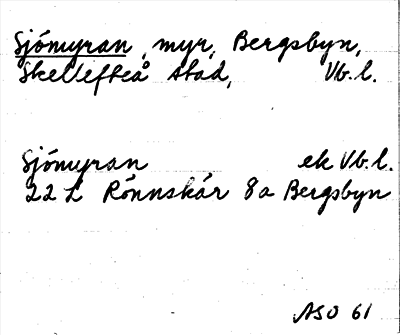 Sjömyran, myr, Bergsbyn,
Skellefteå stad, Vb.l.
Sjömyran ek Vb.l.
22 L Rönnskär 8a Bergsbyn
ASO 61